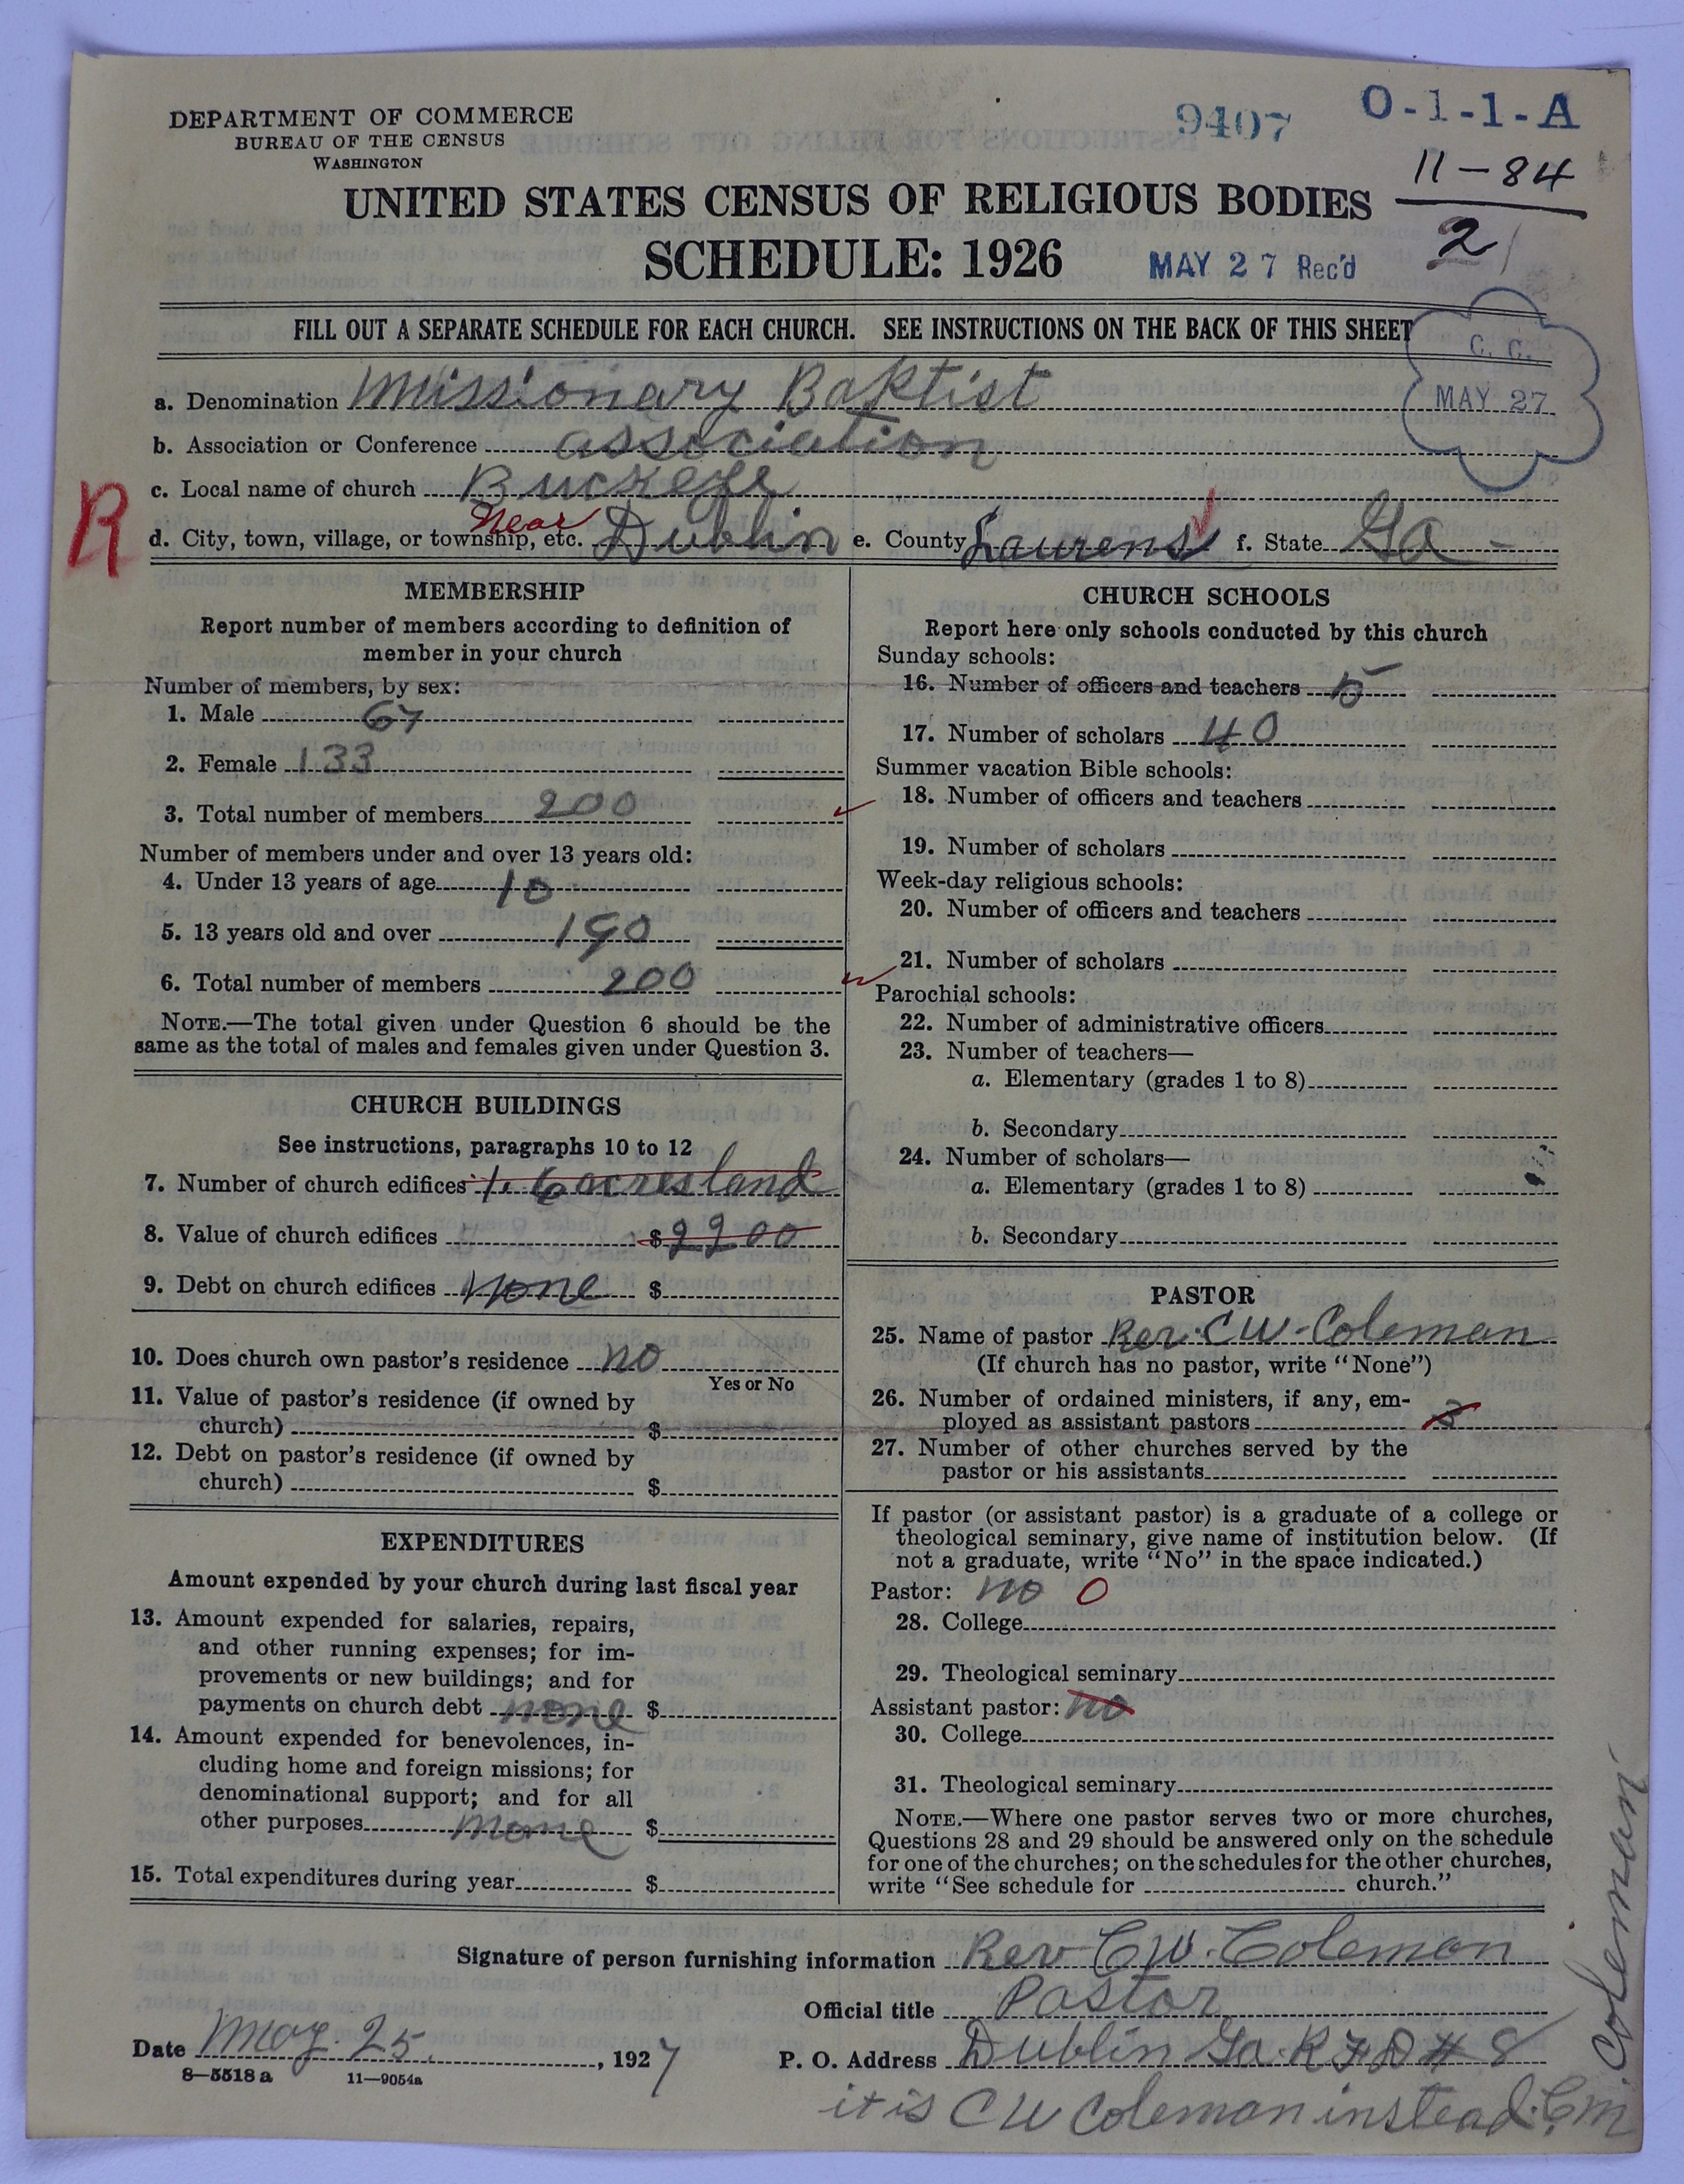 DEPARTMENT OF COMMERCE
BUREAU OF THE CENSUS
WASHINGTON
9407
O-1-1-A
11-84
2
UNITED STATES CENSUS OF RELIGIOUS BODIES
SCHEDULE: 1926
MAY 27 Rec'd
FILL OUT A SEPARATE SCHEDULE FOR EACH CHURCH. SEE INSTRUCTIONS ON THE BACK OF THIS SHEET
C. C.
MAY 27
a. Denomination Missionary Baptist
b. Association or Conference association
c. Local name of church Buckeye
R
d. City, town, village, or township, etc. Near Dublin e. County Laurens f. State Ga
MEMBERSHIP
Report number of members according to definition of
member in your church
Number of members, by sex:
1. Male 67
2. Female 133
3. Total number of members 200
Number of members under and over 13 years old:
4. Under 13 years of age 10
5. 13 years old and over 190
6. Total number of members 200
NOTE.—The total given under Question 6 should be the
same as the total of males and females given under Question 3.
CHURCH BUILDINGS
See instructions, paragraphs 10 to 12
7. Number of church edifices 1. 6 acres land
8. Value of church edifices $2200
9. Debt on church edifices none $
10. Does church own pastor's residence no
Yes or No
11. Value of pastor's residence (if owned by
church) $
12. Debt on pastor's residence (if owned by
church) $
EXPENDITURES
Amount expended by your church during last fiscal year
13. Amount expended for salaries, repairs,
and other running expenses; for im-
provements or new buildings; and for
payments on church debt none $
14. Amount expended for benevolences, in-
cluding home and foreign missions; for
denominational support; and for all
other purposes none $
15. Total expenditures during year $
CHURCH SCHOOLS
Report here only schools conducted by this church
Sunday schools:
16. Number of officers and teachers 5
17. Number of scholars 40
Summer vacation Bible schools:
18. Number of officers and teachers
19. Number of scholars
Week-day religious schools:
20. Number of officers and teachers
21. Number of scholars
Parochial schools:
22. Number of administrative officers
23. Number of teachers—
a. Elementary (grades 1 to 8)
b. Secondary
24. Number of scholars—
a. Elementary (grades 1 to 8)
b. Secondary
PASTOR
25. Name of pastor Rev. C W. Coleman
(If church has no pastor, write "None")
26. Number of ordained ministers, if any, em-
ployed as assistant pastors 3
27. Number of other churches served by the
pastor or his assistants
If pastor (or assistant pastor) is a graduate of a college or
theological seminary, give name of institution below. (If
not a graduate, write "No" in the space indicated.)
Pastor: no 0
28. College
29. Theological seminary
Assistant pastor: no
30. College
31. Theological seminary
NOTE.—Where one pastor serves two or more churches,
Questions 28 and 29 should be answered only on the schedule
for one of the churches; on the schedules for the other churches,
write "See schedule for church."
Signature of person furnishing information Rev C W. Coleman
Official title Pastor
Date May. 25, 1927
P. O. Address Dublin Ga. R F D # 8
8-5518 a 11-9054a
it is C W Coleman instead. C, M
Coleman